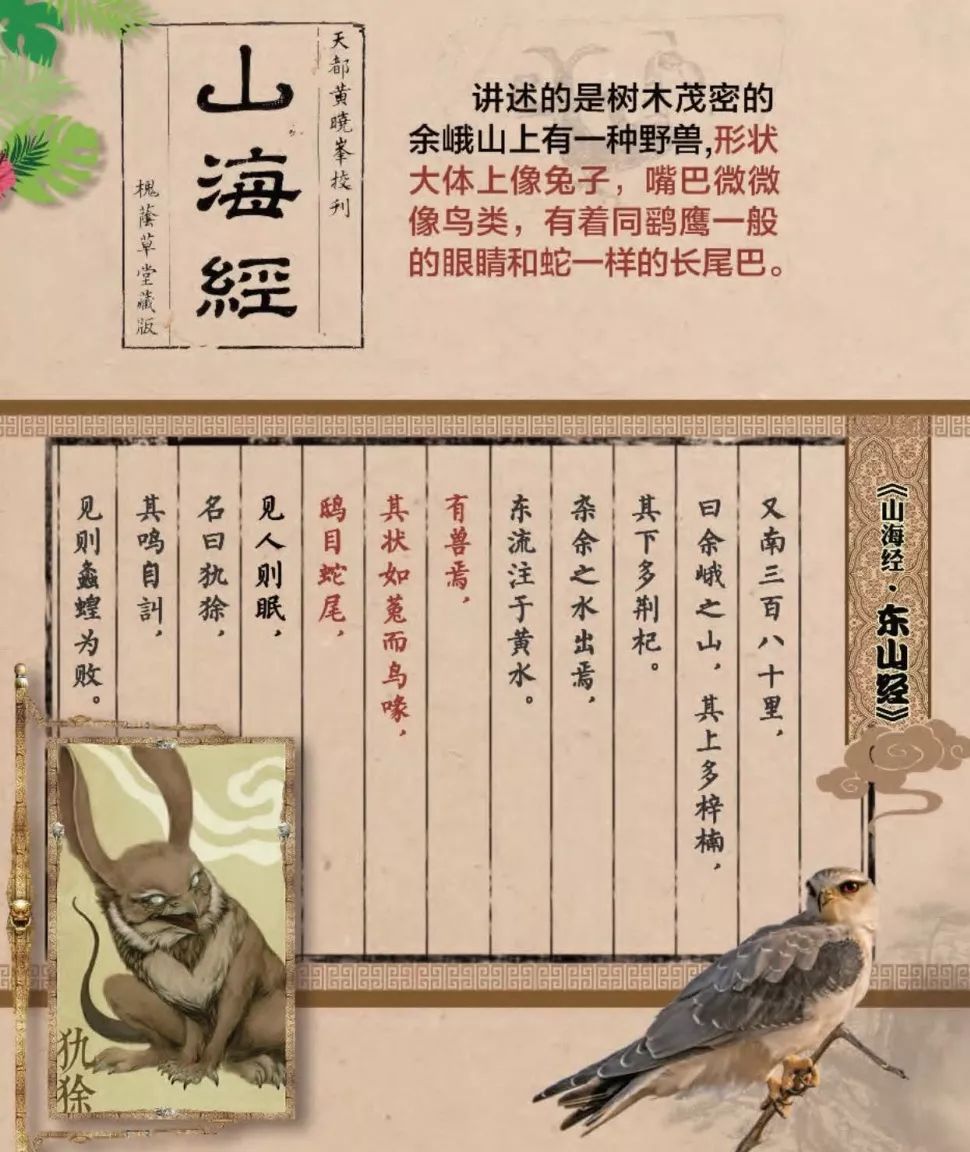 天都黄曉峯挍刊
山海經
槐蔭草堂藏版
讲述的是树木茂密的
余峨山上有一种野兽,形状
大体上像兔子，嘴巴微微
像鸟类，有着同鹞鹰一般
的眼睛和蛇一样的长尾巴。
《山海经·东山经》
又南三百八十里，
曰余峨之山，其上多梓楠，
其下多荆杞。
杂余之水出焉，
东流注于黄水。
有兽焉，
其状如菟而鸟喙，
鸱目蛇尾，
见人则眠，
名曰犰狳，
其鸣自訆，
见则螽蝗为败。
犰
狳